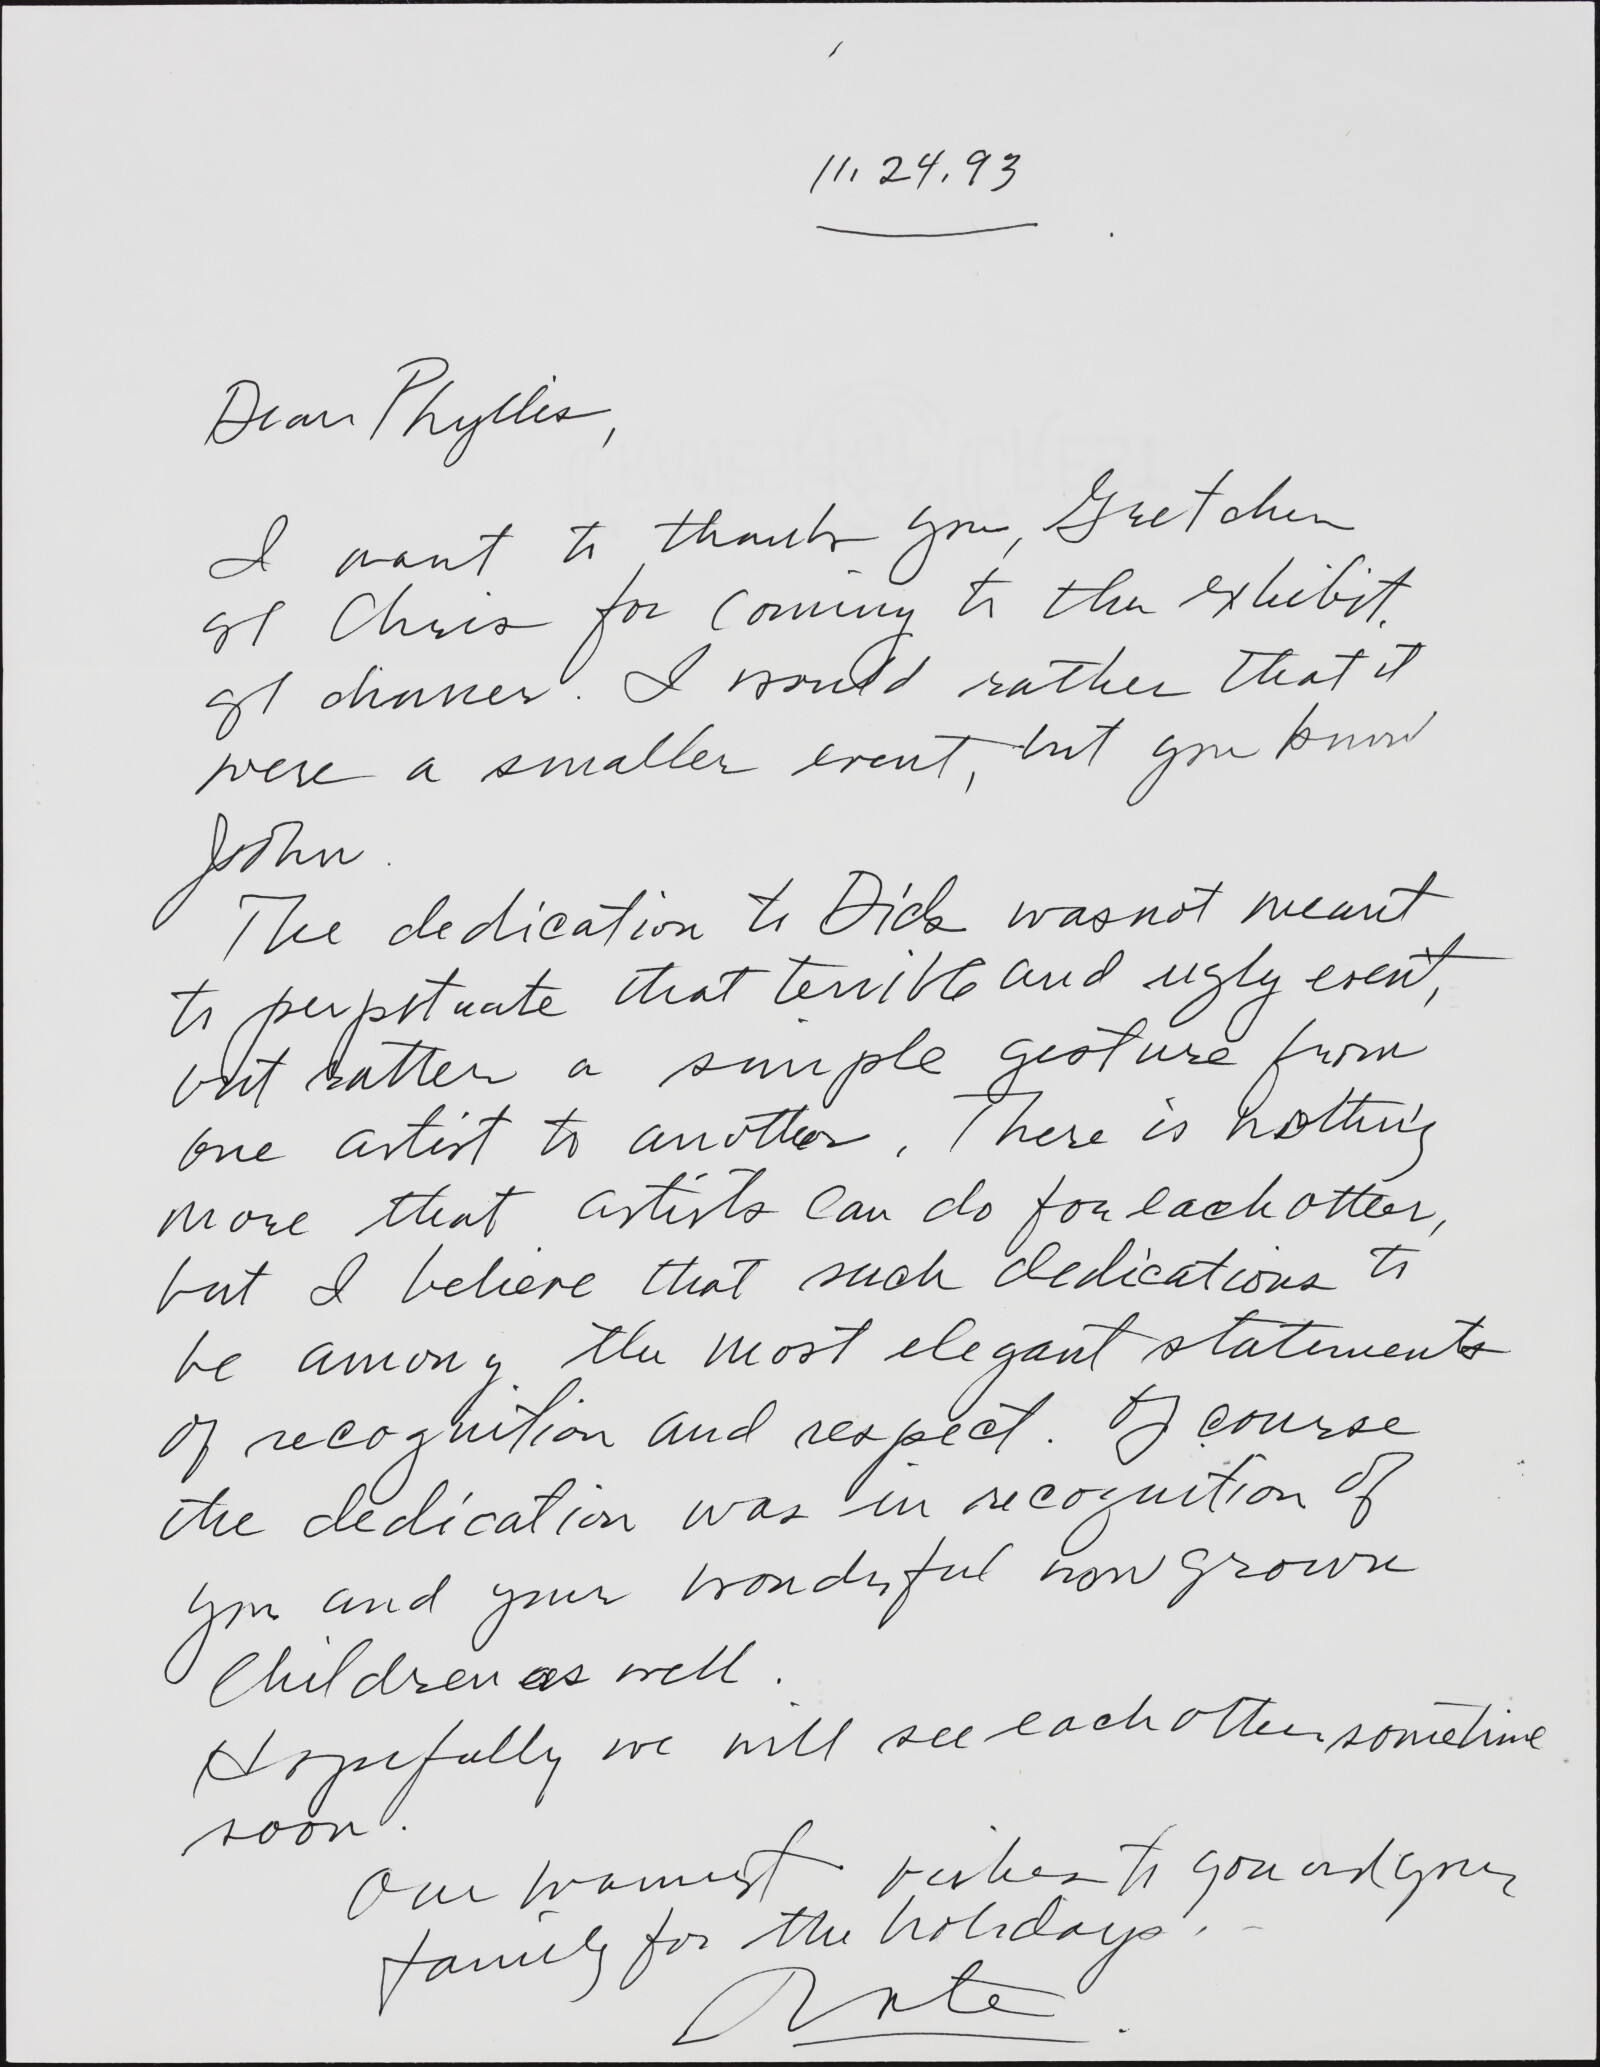 11.24.93
Dear Phyllis,
I want to thank you, Gretchen
& Chris for coming to the exhibit
& dinner. I would rather that it
were a smaller event, but you know
John.
The dedication to Dick was not meant
to perpetuate that terrible and ugly event,
but rather a simple gesture from
one artist to another. There is nothing
more that artists can do for each other,
but I believe that such dedications to
be among the most elegant statements
of recognition and respect. Of course
the dedication was in recognition of
you and your wonderful now grown
Children as well.
Hopefully we will see each other sometime
soon.
Our warmest wishes to you and your
family for the holidays.